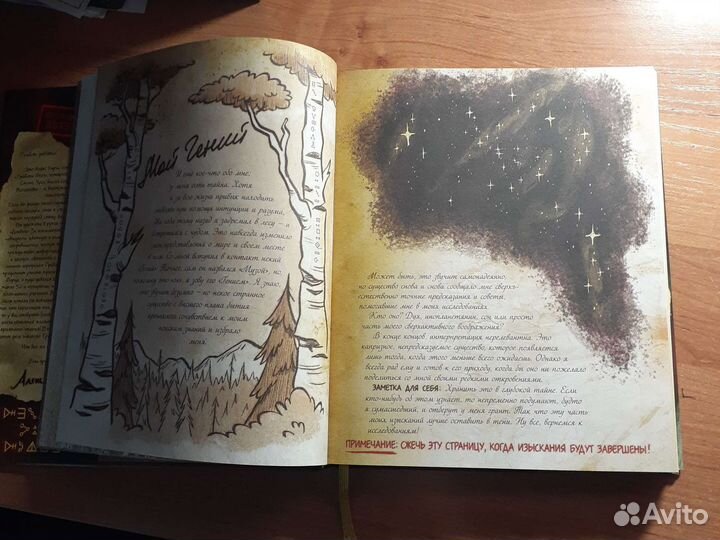 Мой Гений
И еще кое-что обо мне:
у меня есть тайна. Хотя
я за всю жизнь привык находить
помощи интуиции и разума,
года тому назад я задремал в лесу — и
встретился с чудом. Это навсегда изменило
мои представления о мире и своем месте
в нем. Со мной вступил в контакт некий
Точнее, сам он назвался «Музой», но,
я зову его «Гением». Я знаю,
это звучит безумно — но некое странное
существо с высшего плана бытия
прониклось сочувствием к моим
поискам знаний и избрало
меня.
Может быть, это звучит самонадеянно,
но существо снова и снова сообщало мне сверхъ-
естественно точные предсказания и советы,
помогавшие мне в моих исследованиях.
Кто оно? Дух, инопланетянин, сон или просто
часть моего сверхактивного воображения?
В конце концов, интерпретация нерелевантна. Это
капризное, непредсказуемое существо, которое появляется
лишь тогда, когда этого меньше всего ожидаешь. Однако я
всегда рад ему и готов к его приходу, когда бы оно ни пожелало
поделиться со мной своими редкими откровениями.
ЗАМЕТКА ДЛЯ СЕБЯ: Хранить это в глубокой тайне. Если
кто-нибудь об этом узнает, то непременно подумают, будто
я сумасшедший, и отберут у меня грант. Так что эту часть
моих изысканий лучше оставить в тени. Ну все, вернемся к
исследованиям!
ПРИМЕЧАНИЕ: СЖЕЧЬ ЭТУ СТРАНИЦУ, КОГДА ИЗЫСКАНИЯ БУДУТ ЗАВЕРШЕНЫ!
Avito